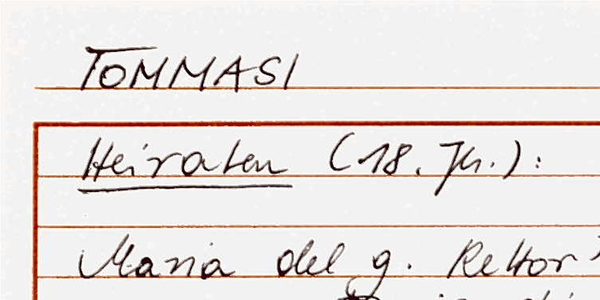 TOMMASI
Heiraten (18. Jh.):
Maria del g. Rektor